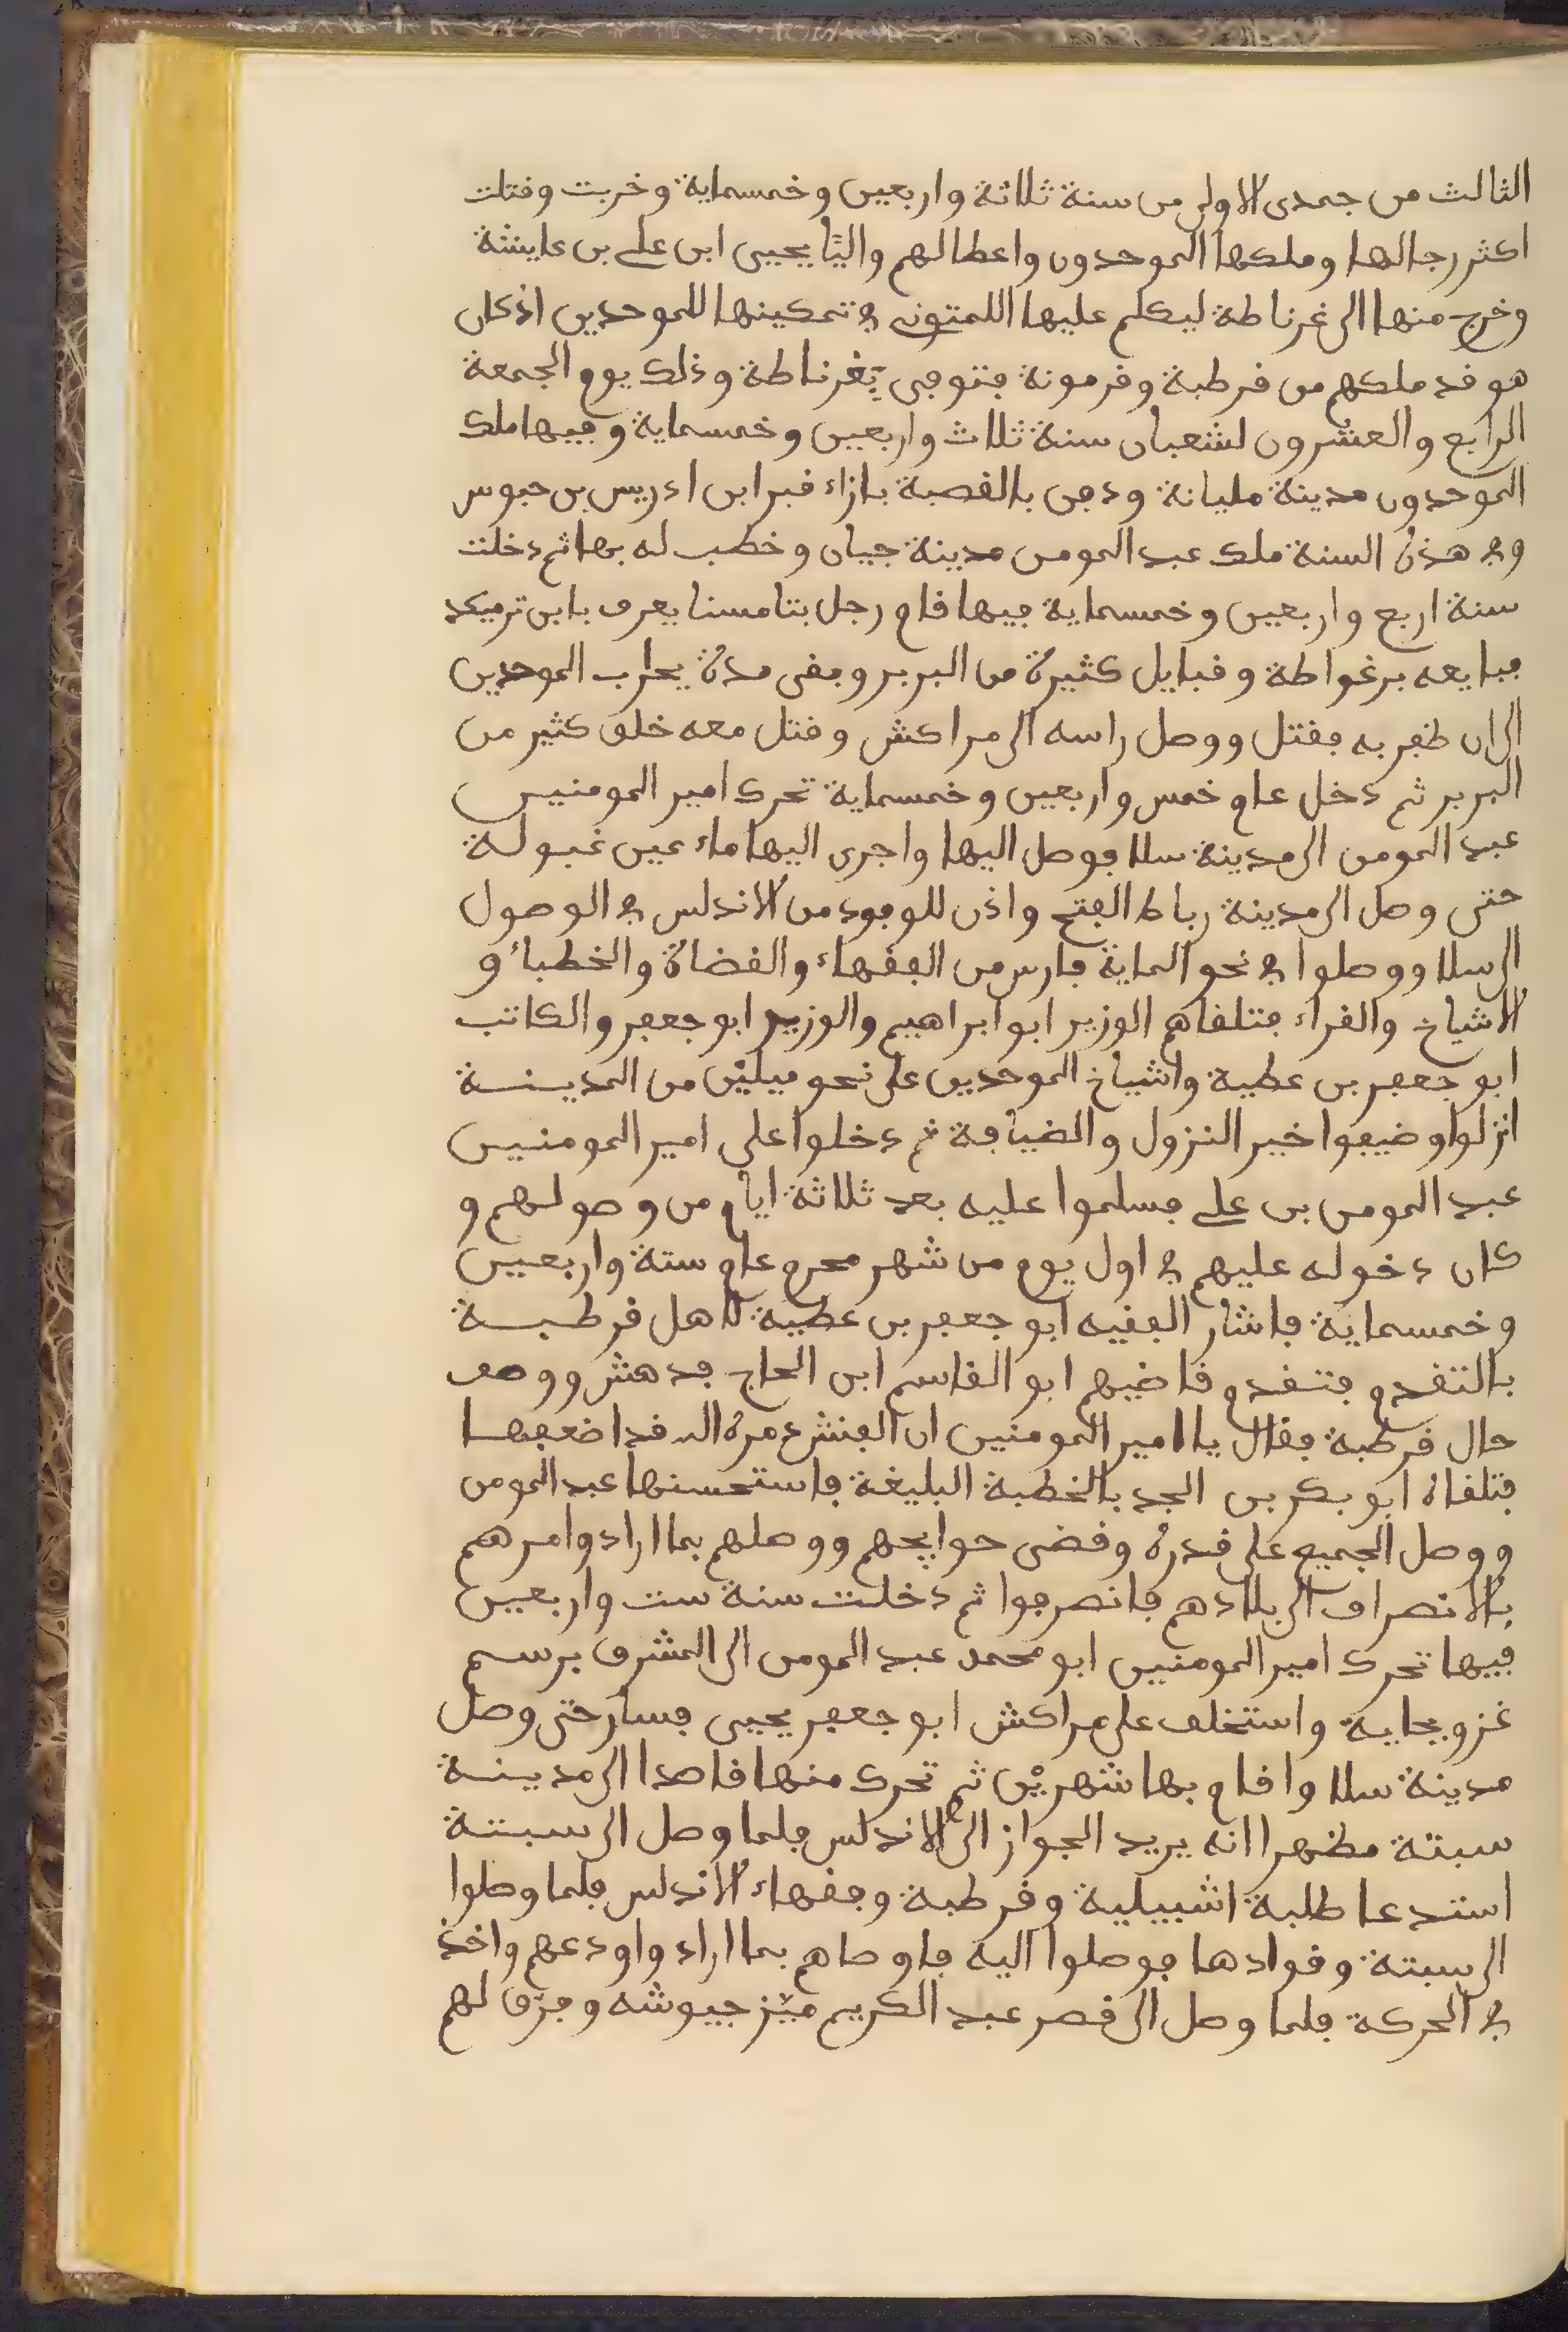 الثالث من جمدى الاولى من سنة ثلاثة واربعين وخمسماية وخربت وقتلت
اكثر رجالها وملكها الموحدون واعطا لهم واليا يحيى ابن على بن عايشة
وخرج منها الى غرناطة ليكلم عليها اللمتونى في تمكينها للموحدين اذ كان
هو قد ملكهم من قرطبة وقرمونة فتوفى بغرناطة وذلك يوم الجمعة
الرابع والعشرون لشعبان سنة ثلاث واربعين وخمسماية وفيها ملك
الموحدون مدينة مليانة ودفن بالقصبة بازاء قبر ابن ادريس بن حبوس
وفي هذه السنة ملك عبد المومن مدينة جيان وخطب له بها ثم دخلت
سنة اربع واربعين وخمسماية فيها قام رجل بتامسنا يعرف بابن ترميكد
فبايعه برغواطة وقبايل كثيرة من البربر وبقى مدة يحارب الموحدين
الى ان ظفر به فقتل ووصل راسه الى مراكش وقتل معه خلق كثير من
البربر ثم دخل عام خمس واربعين وخمسماية تحرك امير المومنين
عبد المومن الى مدينة سلا فوصل اليها واجرى اليها ماء عين غبولة
حتى وصل الى مدينة رباط الفتح واذن للوفود من الاندلس في الوصول
الى سلا ووصلوا في نحو الماية فارس من الفقهاء والقضاة والخطباء و
الاشياخ والقراء فتلقاهم الوزير ابو ابراهيم والوزير ابو جعفر والكاتب
ابو جعفر بن عطية واشياخ الموحدين على نحو ميلين من المدينة
انزلوا وضيفوا خير النزول والضيافة ثم دخلوا على امير المومنين
عبد المومن بن على فسلموا عليه بعد ثلاثة ايام من وصولهم و
كان دخوله عليهم في اول يوم من شهر محرم عام ستة واربعين
وخمسماية فاشار الفقيه ابو جعفر بن عطية لاهل قرطبة
بالتقدم فتقدم قاضيهم ابو القاسم ابن الحاج فدهش ووصف
حال قرطبة فقال يا امير المومنين ان الفنش دمره الله قد اضعفها
فتلقاه ابو بكر بن الجد بالخطبة البليغة فاستحسنها عبد المومن
ووصل الجميع على قدره وقضى حوايجهم ووصلهم بما اراد وامرهم
بالانصراف الى بلادهم فانصرفوا ثم دخلت سنة ست واربعين
فيها تحرك امير المومنين ابو محمد عبد المومن الى المشرق برسم
غزو بجاية واستخلف على مراكش ابو جعفر يحيى فسار حتى وصل
مدينة سلا واقام بها شهرين ثم تحرك منها قاصدا الى مدينة
سبتة مظهرا انه يريد الجواز الى الاندلس فلما وصل الى سبتة
استدعا طلبة اشبيلية وقرطبة وفقهاء الاندلس فلما وصلوا
الى سبتة وقوادها فوصلوا اليه فاوصاهم بما اراد واودعهم واخذ
في الحركة فلما وصل الى قصر عبد الكريم ميّز جيوشه وفرّق لهم